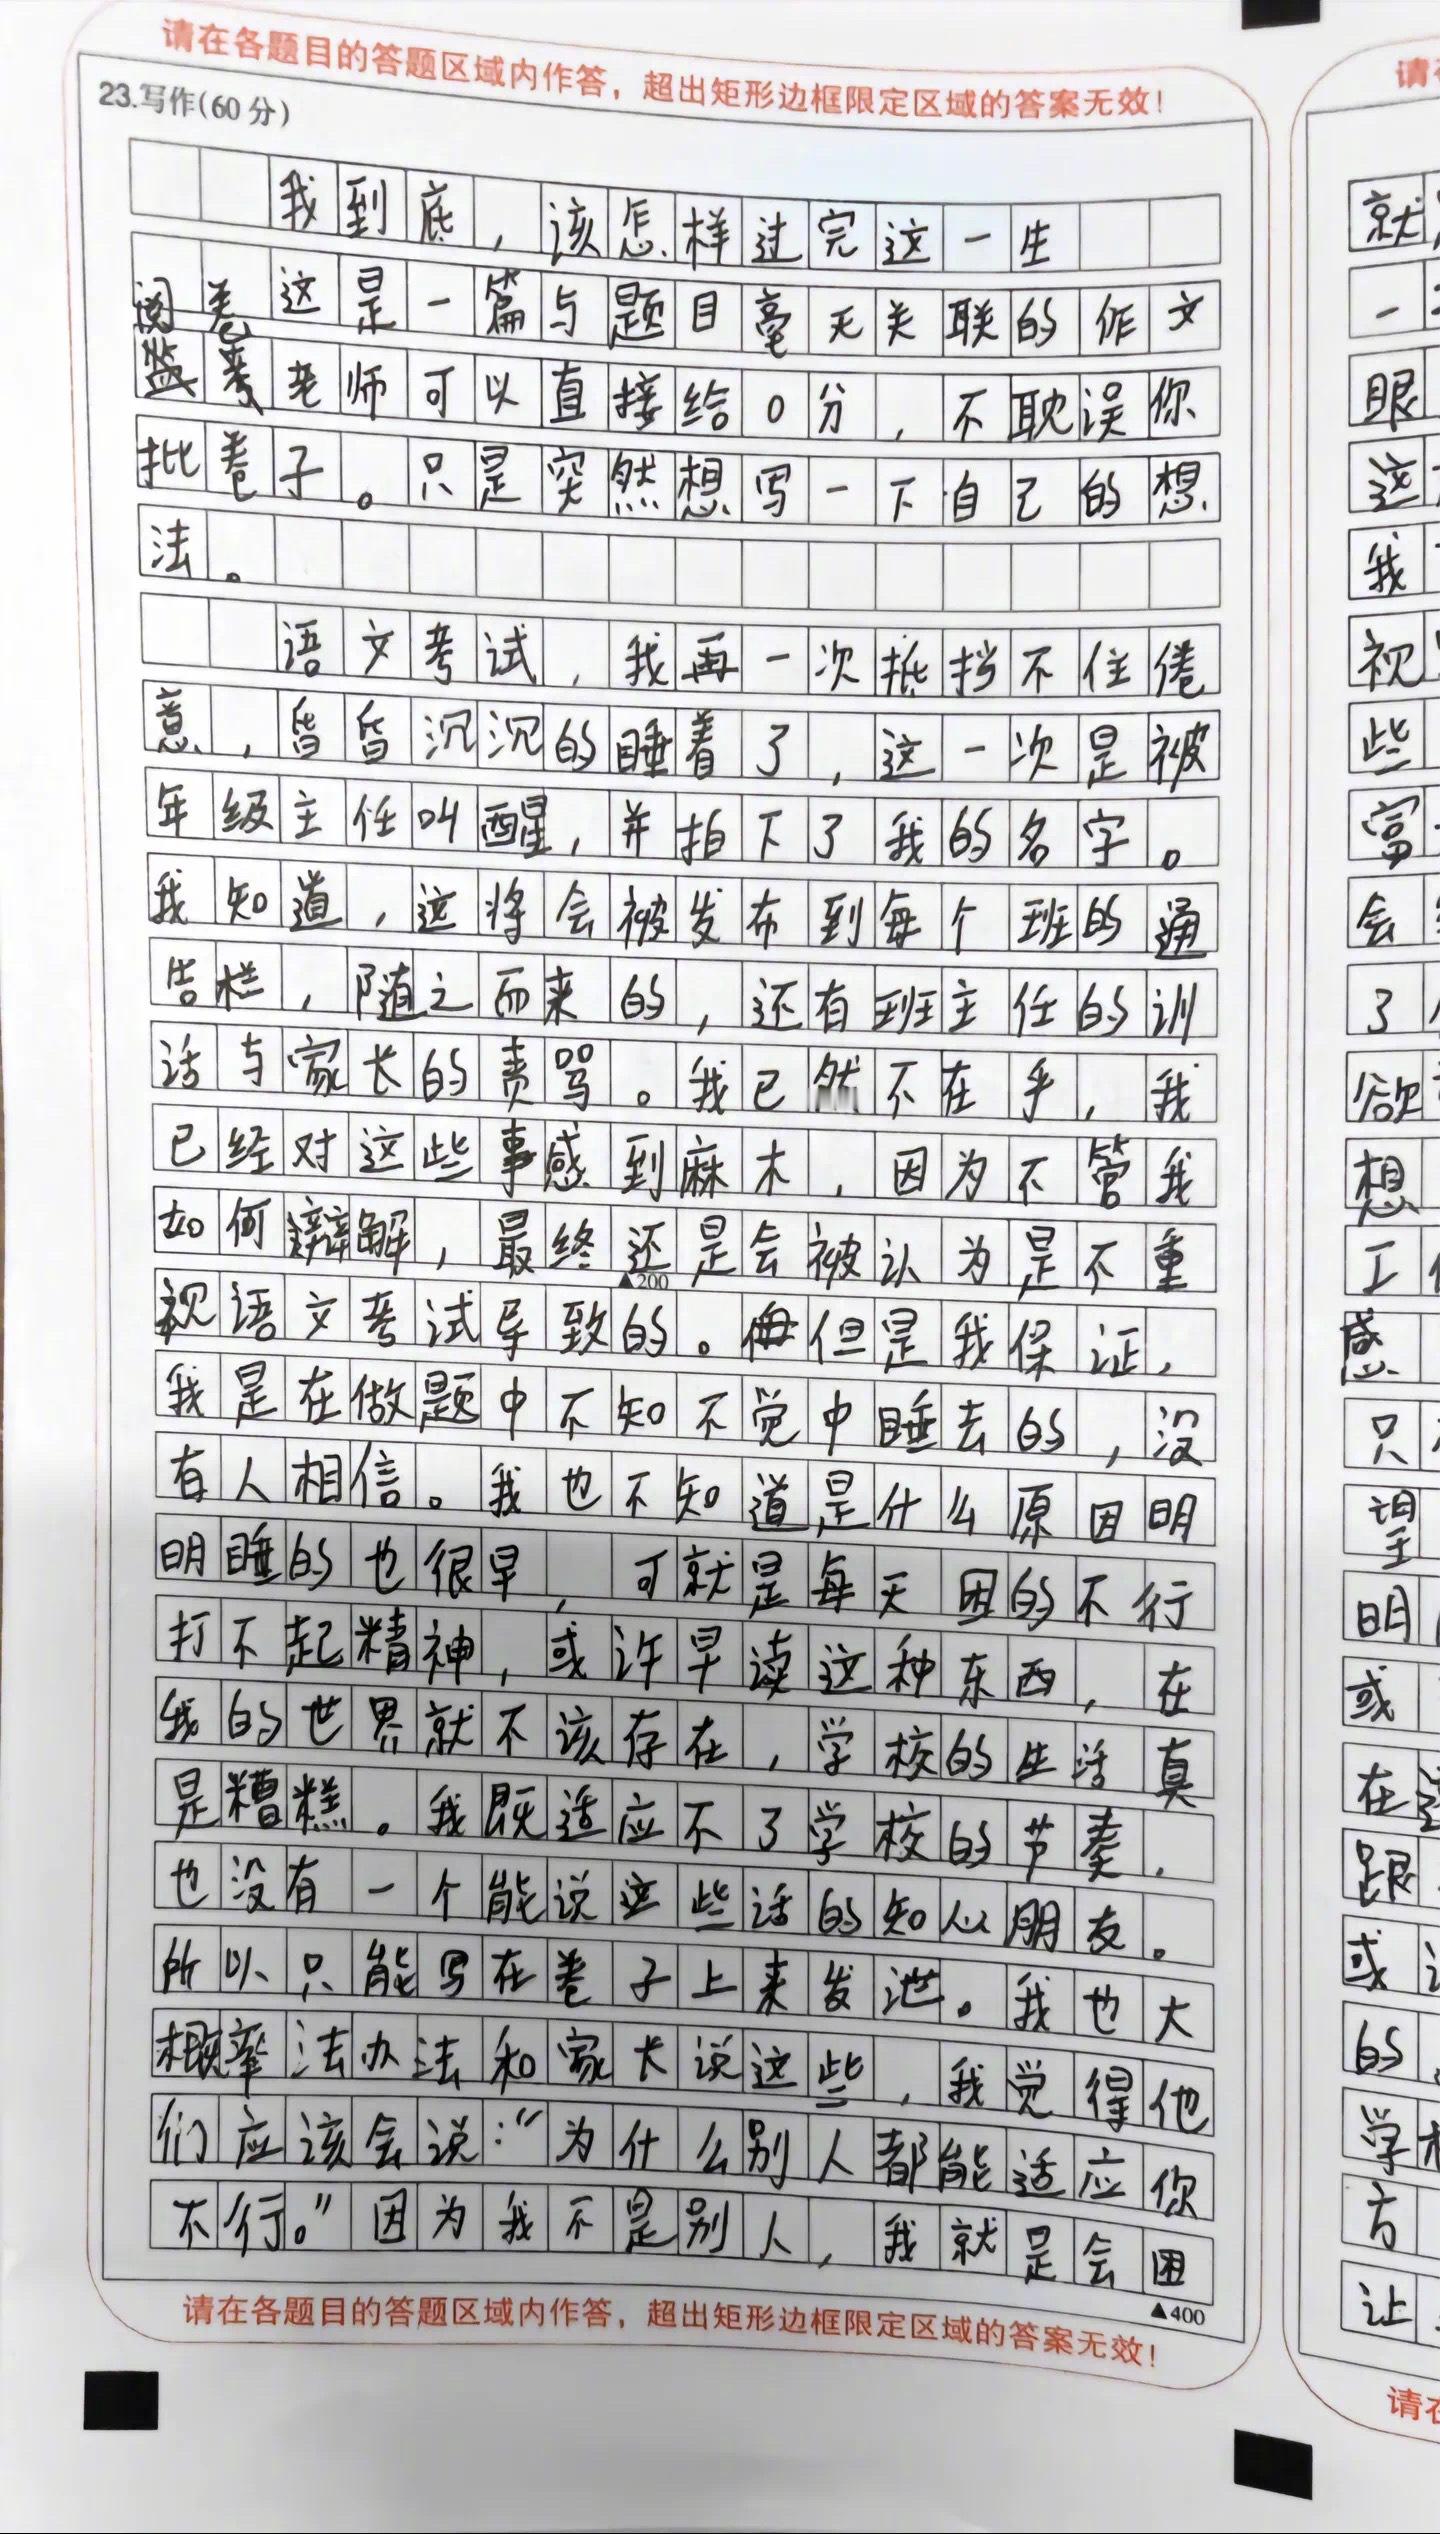 请在各题目的答题区域内作答，超出矩形边框限定区域的答案无效！
23.写作(60分)
我到底，该怎样过完这一生
这是一篇与题目毫无关联的作文
阅卷老师可以直接给0分，不耽误你
批卷子。只是突然想写一下自己的想
法。
语文考试，我再一次抵挡不住倦
意，昏昏沉沉的睡着了，这一次是被
年级主任叫醒，并拍下了我的名字。
我知道，这将会被发布到每个班的通
告栏，随之而来的，还有班主任的训
话与家长的责骂。我已然不在乎，我
已经对这些事感到麻木，因为不管我
如何辩解，最终还是会被认为是不重
▲200
视语文考试导致的。但是我保证，
我是在做题中不知不觉中睡去的，没
有人相信。我也不知道是什么原因明
明睡的也很早，可就是每天困的不行
打不起精神，或许早读这种东西，在
我的世界就不该存在，学校的生活真
是糟糕。我既适应不了学校的节奏，
也没有一个能说这些话的知心朋友。
所以只能写在卷子上来发泄。我也大
概率法办法和家长说这些，我觉得他
们应该会说：“为什么别人都能适应你
不行。”因为我不是别人，我就是会困
▲400
请在各题目的答题区域内作答，超出矩形边框限定区域的答案无效！
请在
就
一
眼
这
我
视
些
富
会
了
欲
想
工
感
只
望
明
或
在这
跟
或
的
学校
方
让
请在